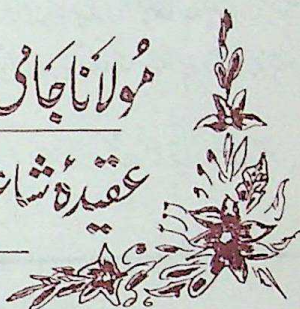 مُولَانَا جَامی
عقیدۂ